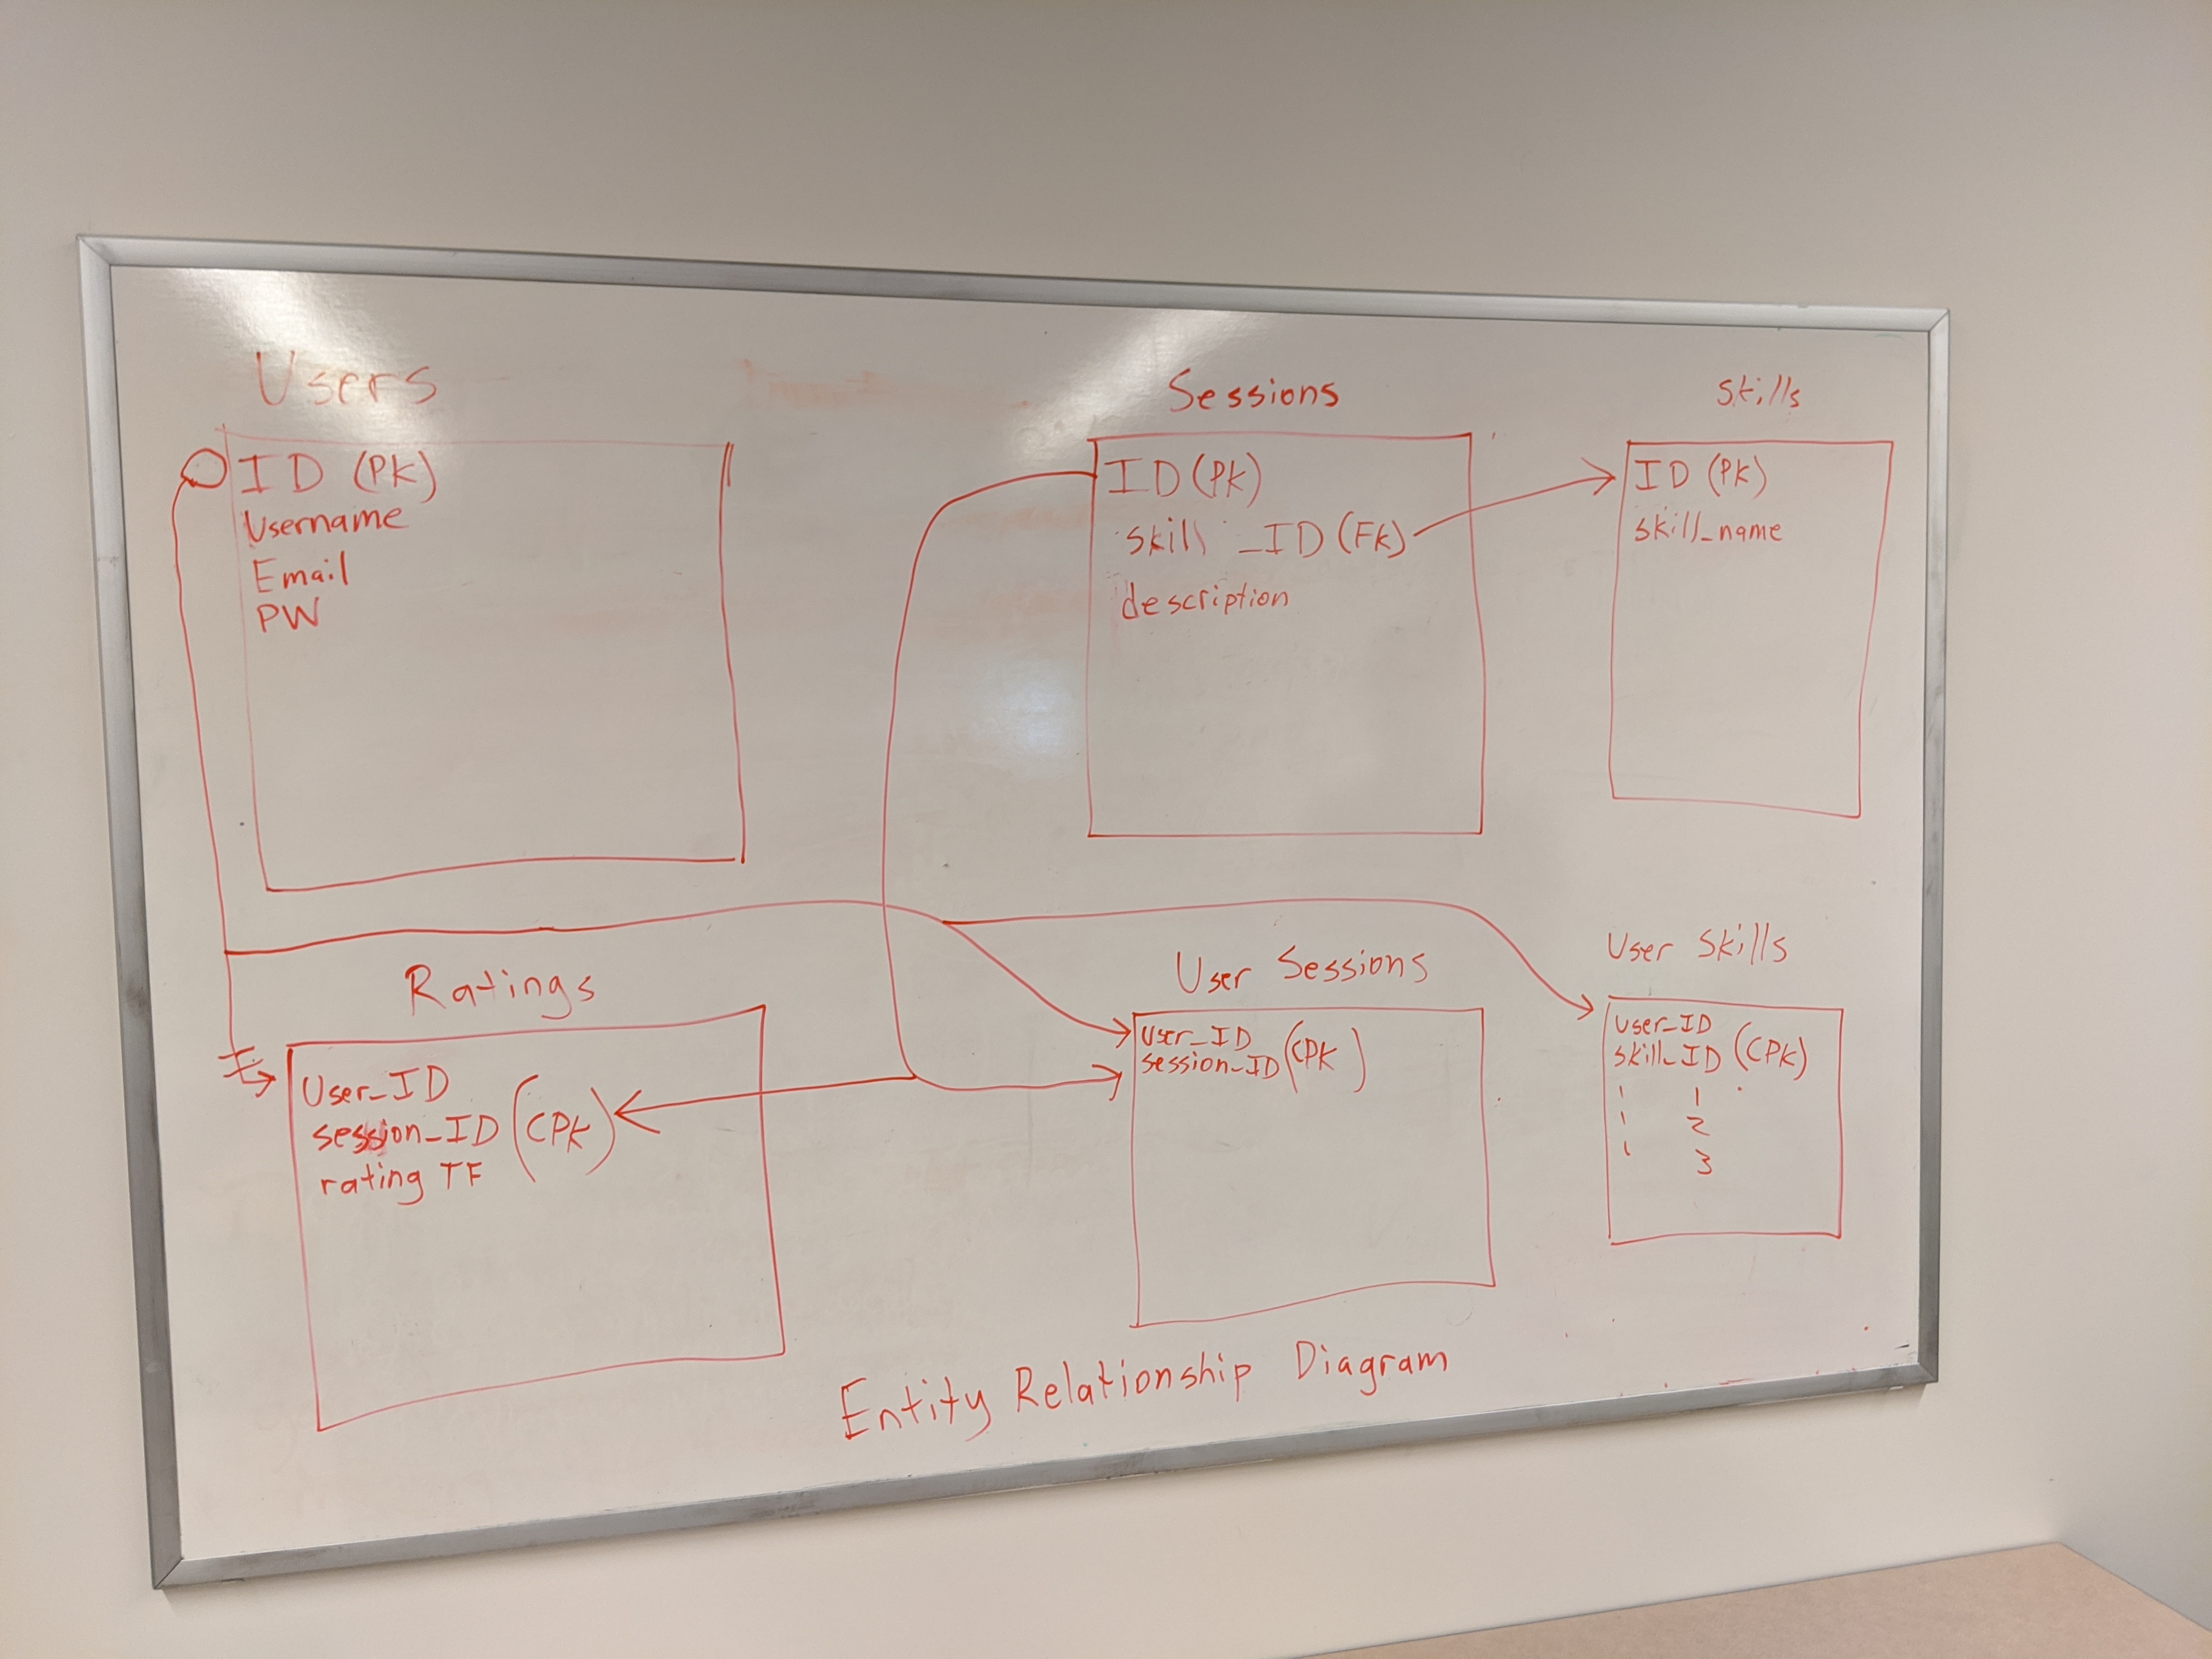 Users
ID (PK)
Username
Email
PW
Sessions
ID (PK)
skill_ID (FK)
description
Skills
ID (PK)
skill_name
Ratings
User_ID
session_ID (CPK)
rating TF
User Sessions
User_ID
session_ID (CPK)
User Skills
User_ID
skill_ID (CPK)
1 1
1 2
1 3
Entity Relationship Diagram